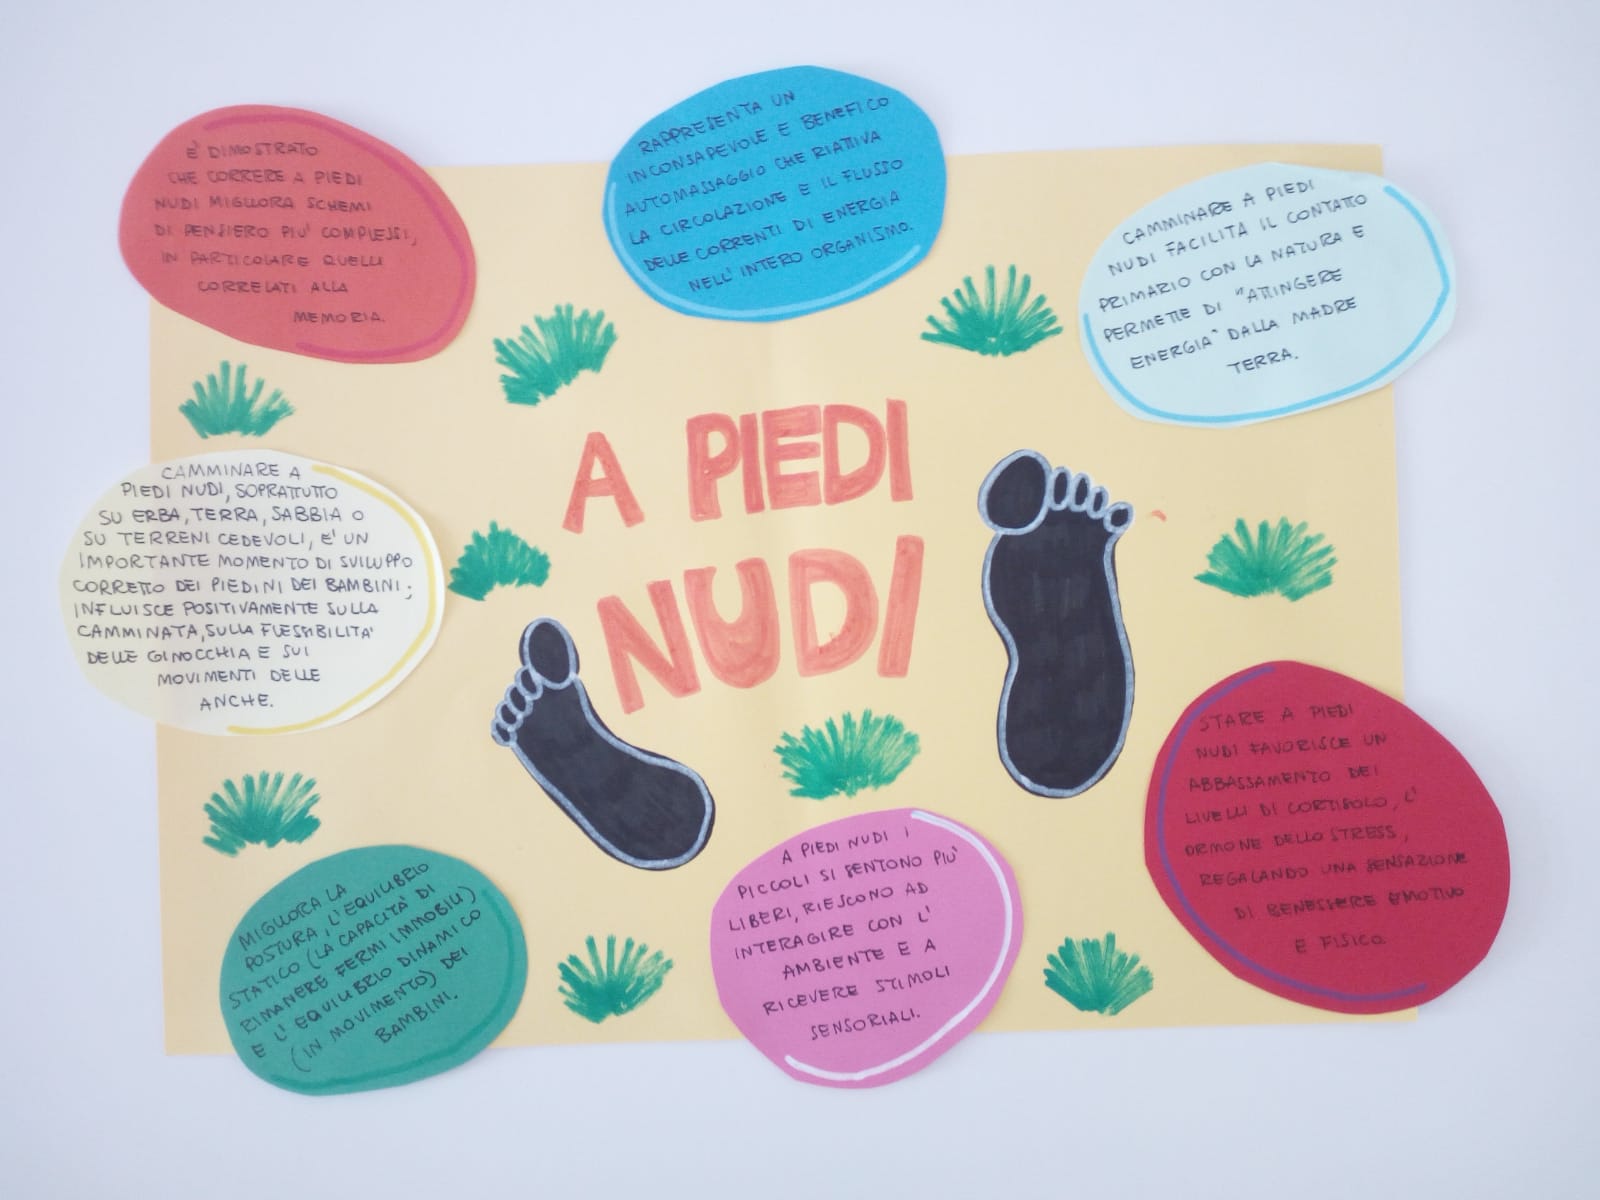 È DIMOSTRATO
CHE CORRERE A PIEDI
NUDI MIGLIORA SCHEMI
DI PENSIERO PIU' COMPLESSI,
IN PARTICOLARE QUELLI
CORRELATI ALLA
MEMORIA.
RAPPRESENTA UN
INCONSAPEVOLE E BENEFICO
AUTOMASSAGGIO CHE RIATTIVA
LA CIRCOLAZIONE E IL FLUSSO
DELLE CORRENTI DI ENERGIA
NELL'INTERO ORGANISMO.
CAMMINARE A PIEDI
NUDI FACILITA IL CONTATTO
PRIMARIO CON LA NATURA E
PERMETTE DI "ATTINGERE
ENERGIA" DALLA MADRE
TERRA.
A PIEDI
NUDI
CAMMINARE A
PIEDI NUDI, SOPRATTUTTO
SU ERBA, TERRA, SABBIA O
SU TERRENI CEDEVOLI, E' UN
IMPORTANTE MOMENTO DI SVILUPPO
CORRETTO DEI PIEDINI DEI BAMBINI;
INFLUISCE POSITIVAMENTE SULLA
CAMMINATA, SULLA FLESSIBILITA'
DELLE GINOCCHIA E SUI
MOVIMENTI DELLE
ANCHE.
STARE A PIEDI
NUDI FAVORISCE UN
ABBASSAMENTO DEI
LIVELLI DI CORTISOLO, L'
ORMONE DELLO STRESS,
REGALANDO UNA SENSAZIONE
DI BENESSERE EMOTIVO
E FISICO.
MIGLIORA LA
POSTURA, L'EQUILIBRIO
STATICO (LA CAPACITÀ DI
RIMANERE FERMI IMMOBILI)
E L'EQUILIBRIO DINAMICO
(IN MOVIMENTO) DEI
BAMBINI.
A PIEDI NUDI I
PICCOLI SI SENTONO PIU'
LIBERI, RIESCONO AD
INTERAGIRE CON L'
AMBIENTE E A
RICEVERE STIMOLI
SENSORIALI.